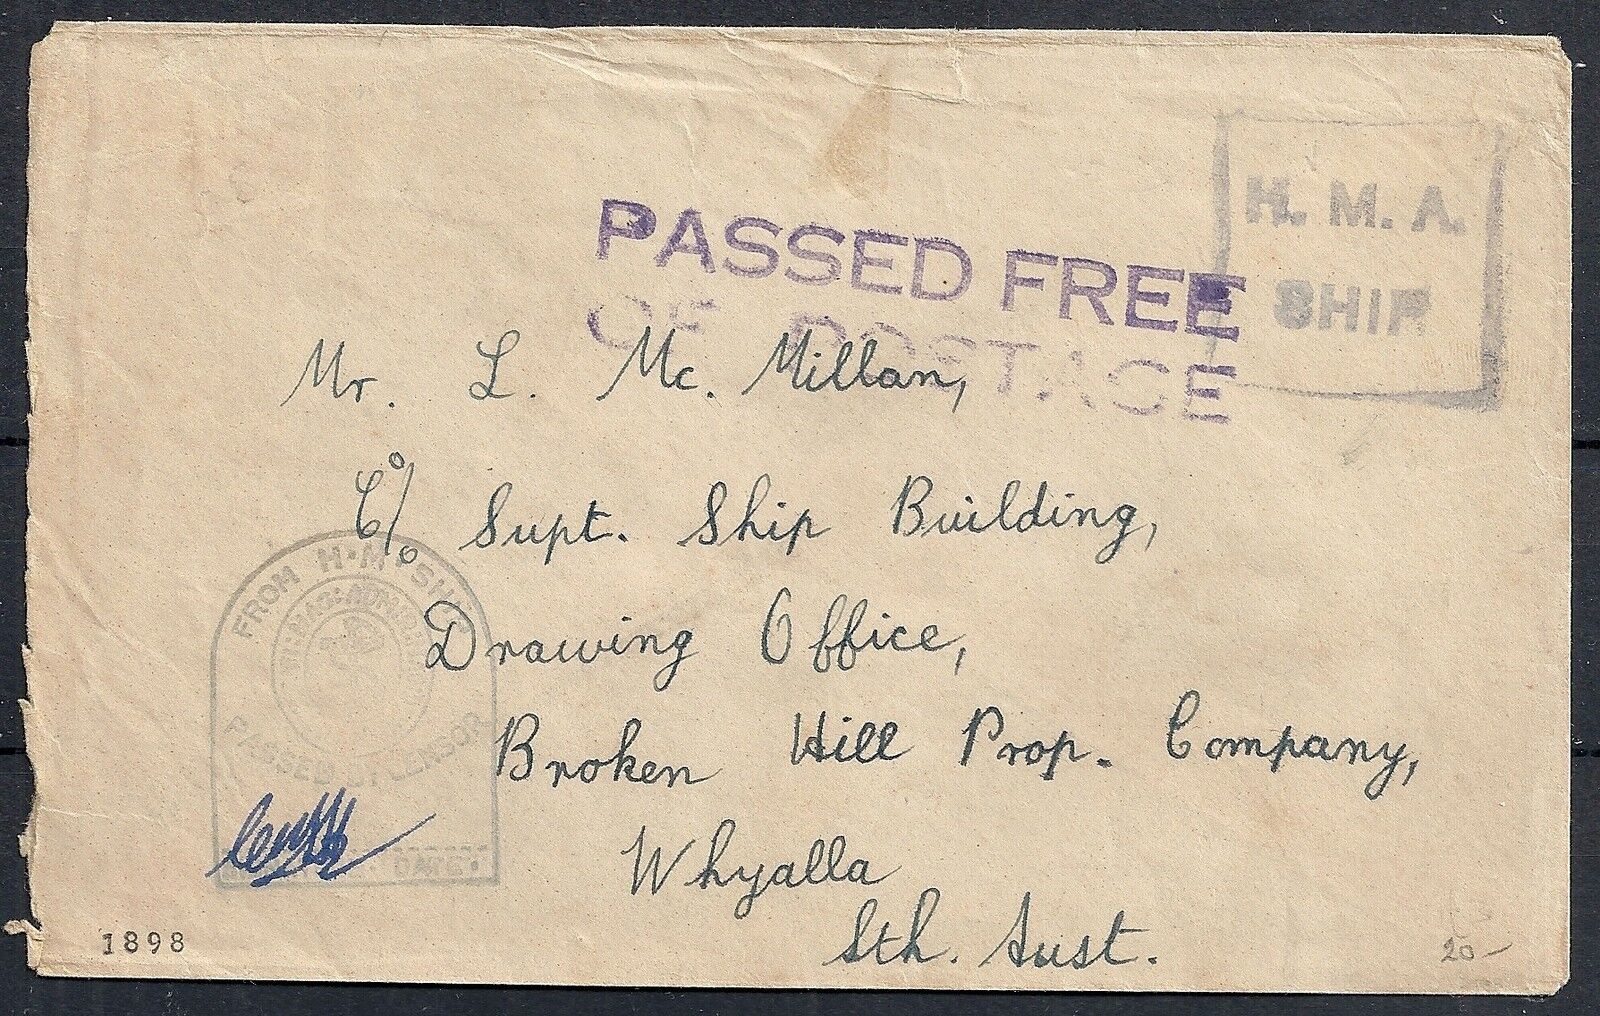 H. M. A.
SHIP
PASSED FREE
OF POSTAGE
Mr. L. Mc. Millan,
C/o Supt. Ship Building,
Drawing Office,
Broken Hill Prop. Company,
Whyalla
Sth. Aust.
FROM H·M·SHIP
PASSED BY CENSOR
DATE
1898
20-